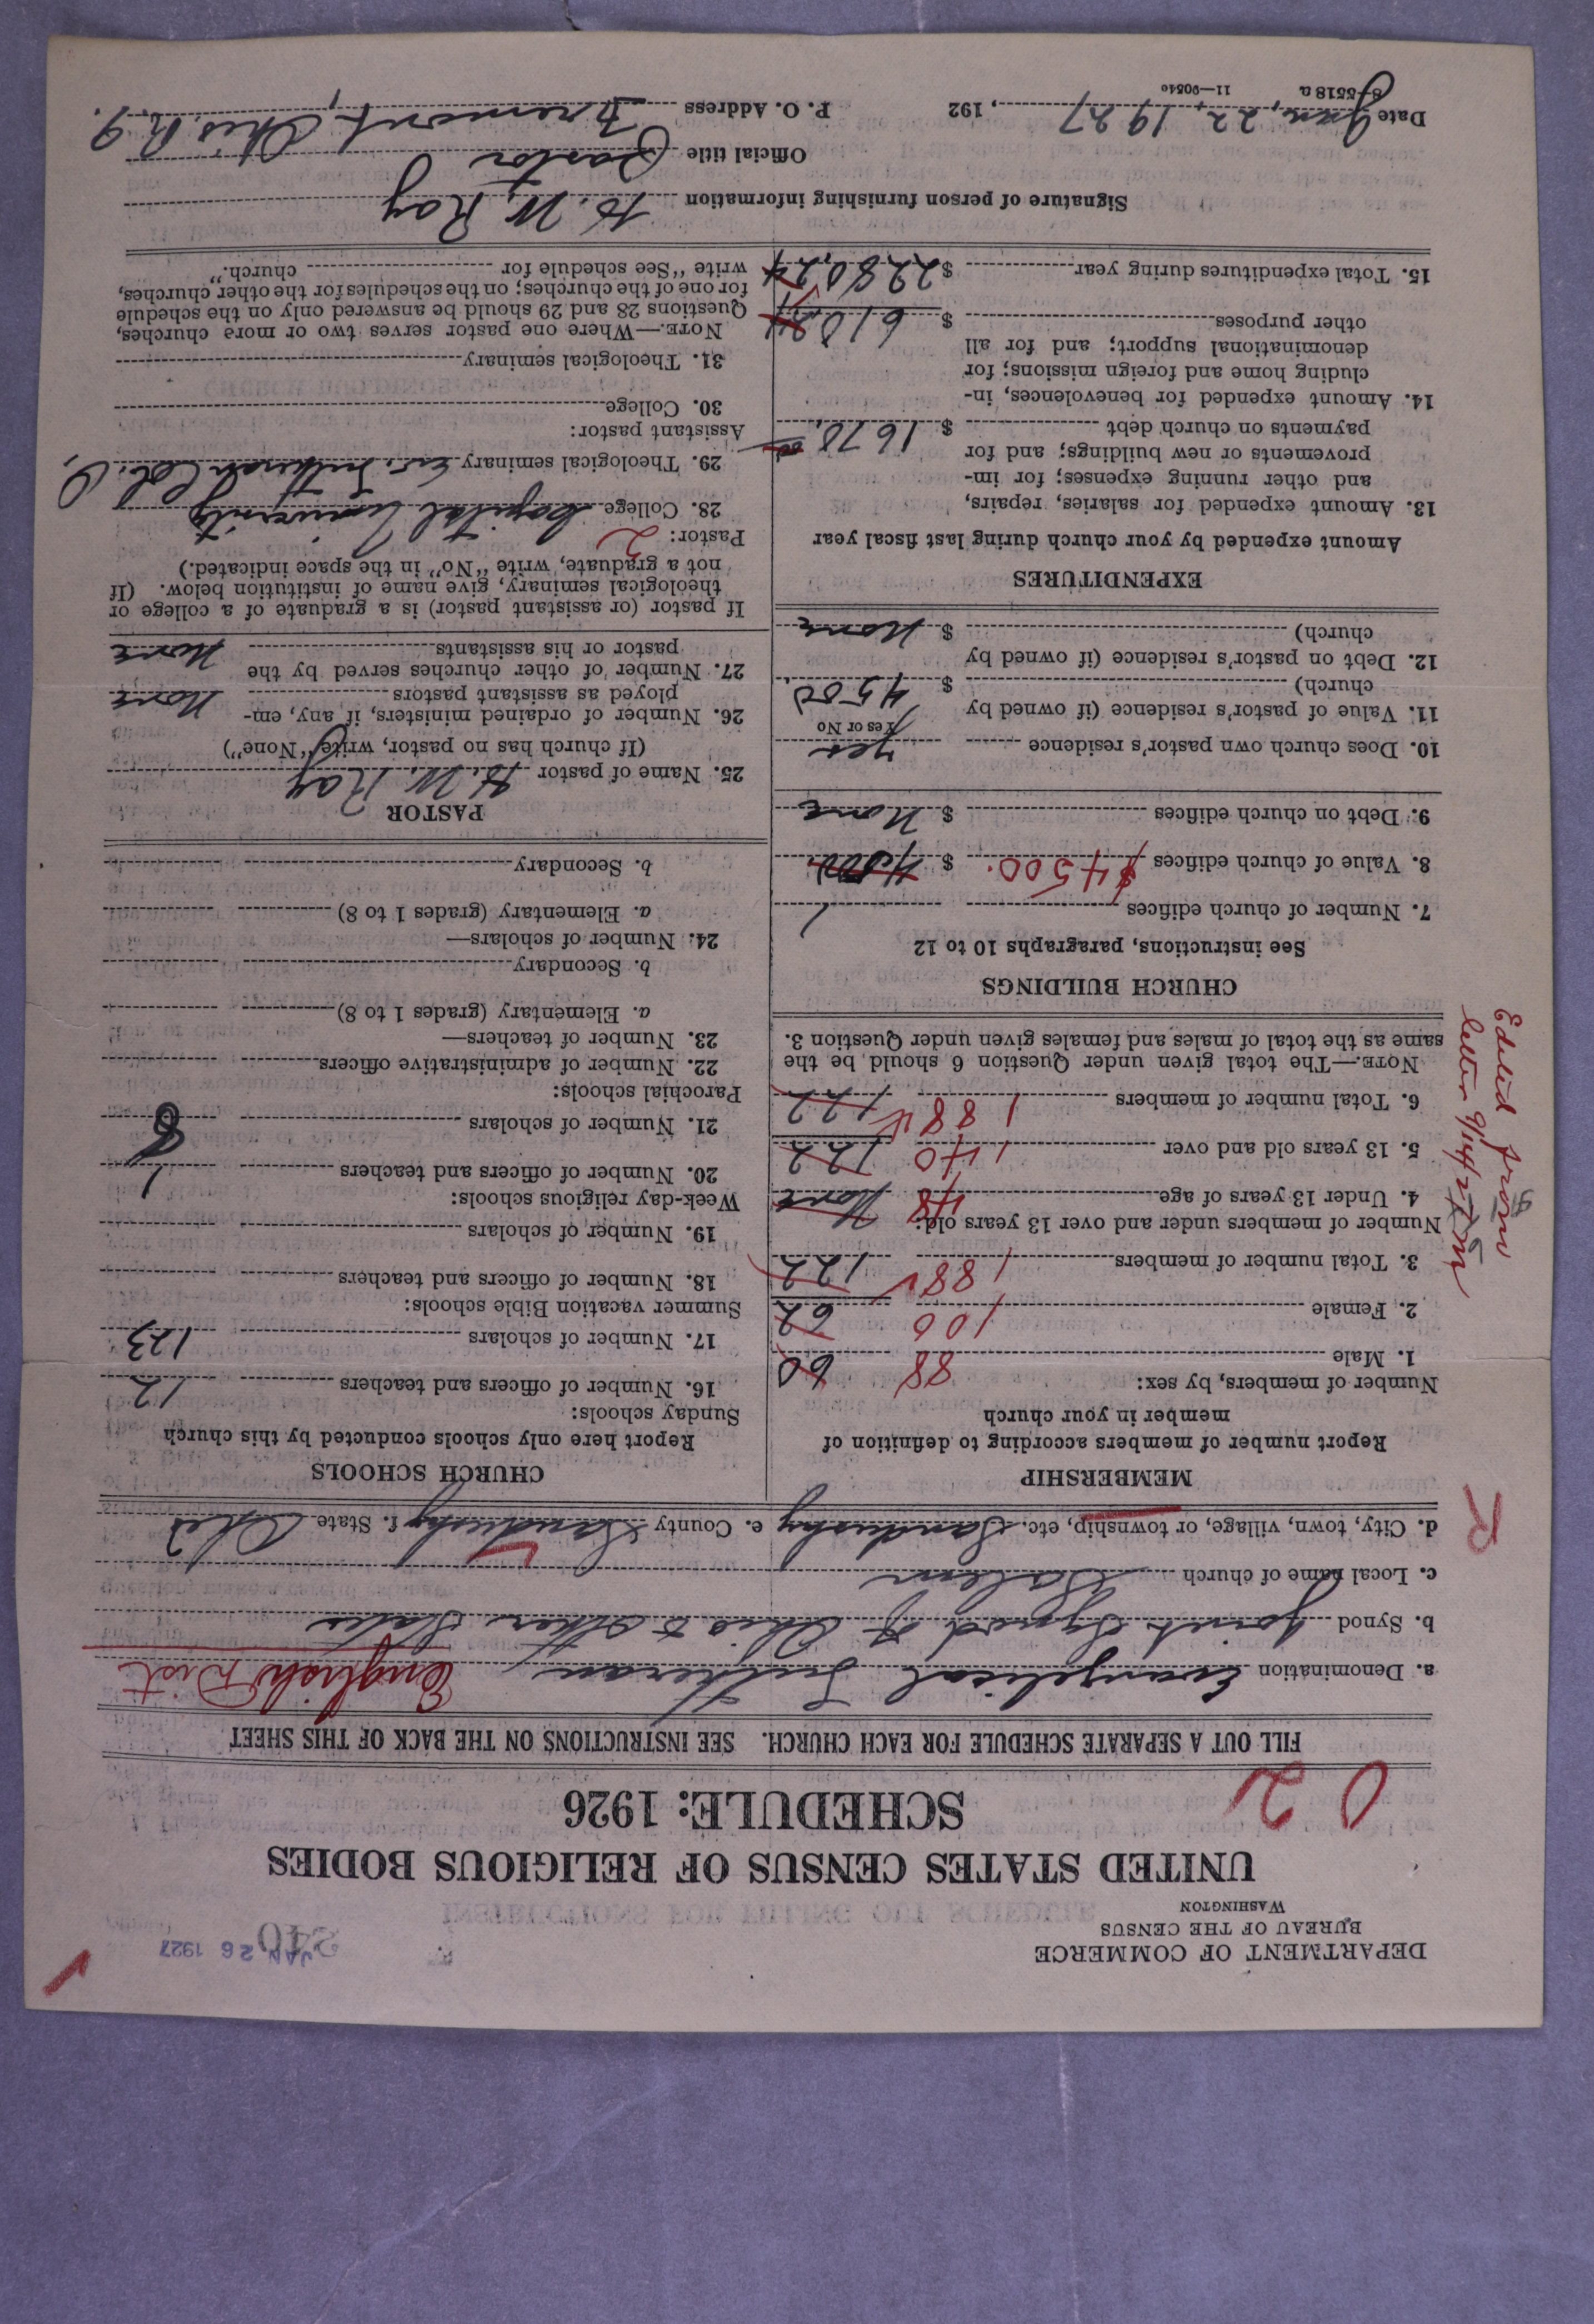 DEPARTMENT OF COMMERCE
BUREAU OF THE CENSUS
WASHINGTON
JAN 26 1927
UNITED STATES CENSUS OF RELIGIOUS BODIES
SCHEDULE: 1926
FILL OUT A SEPARATE SCHEDULE FOR EACH CHURCH. SEE INSTRUCTIONS ON THE BACK OF THIS SHEET
a. Denomination Evangelical Lutheran English Dist
b. Synod Joint Synod of Ohio & Other States
c. Local name of church Salem
d. City, town, village, or township, etc. Sandusky e. County Sandusky f. State Ohio
R
MEMBERSHIP
Report number of members according to definition of
member in your church
Number of members, by sex:
1. Male 88 60
2. Female 100 62
3. Total number of members 188 122
Number of members under and over 13 years old:
4. Under 13 years of age 48 None
5. 13 years old and over 140 122
6. Total number of members 188 122
NOTE.—The total given under Question 6 should be the
same as the total of males and females given under Question 3.
Edited from
letter 9/14/27
CHURCH BUILDINGS
See instructions, paragraphs 10 to 12
7. Number of church edifices 1
8. Value of church edifices $4500. $
9. Debt on church edifices $ None
10. Does church own pastor's residence Yes
Yes or No
11. Value of pastor's residence (if owned by
church) $ 4500
12. Debt on pastor's residence (if owned by
church) $ None
EXPENDITURES
Amount expended by your church during last fiscal year
13. Amount expended for salaries, repairs,
and other running expenses; for im-
provements or new buildings; and for
payments on church debt $ 1670.
14. Amount expended for benevolences, in-
cluding home and foreign missions; for
denominational support; and for all
other purposes $ 610
15. Total expenditures during year $ 2280.24
CHURCH SCHOOLS
Report here only schools conducted by this church
Sunday schools:
16. Number of officers and teachers 12
17. Number of scholars 123
Summer vacation Bible schools:
18. Number of officers and teachers
19. Number of scholars
Week-day religious schools:
20. Number of officers and teachers 1
21. Number of scholars 8
Parochial schools:
22. Number of administrative officers
23. Number of teachers—
a. Elementary (grades 1 to 8)
b. Secondary
24. Number of scholars—
a. Elementary (grades 1 to 8)
b. Secondary
PASTOR
25. Name of pastor H. W. Ray
(If church has no pastor, write "None")
26. Number of ordained ministers, if any, em-
ployed as assistant pastors None
27. Number of other churches served by the
pastor or his assistants None
If pastor (or assistant pastor) is a graduate of a college or
theological seminary, give name of institution below. (If
not a graduate, write "No" in the space indicated.)
Pastor: 2
28. College Capital University
29. Theological seminary Ev. Lutheran Col. O.
Assistant pastor:
30. College
31. Theological seminary
NOTE.—Where one pastor serves two or more churches,
Questions 28 and 29 should be answered only on the schedule
for one of the churches; on the schedules for the other churches,
write "See schedule for church."
Signature of person furnishing information H. W. Ray
Official title Pastor
Date Jan. 22, 1927, 192 P. O. Address Fremont, Ohio. R. 9.
8-5518a 11—9054c